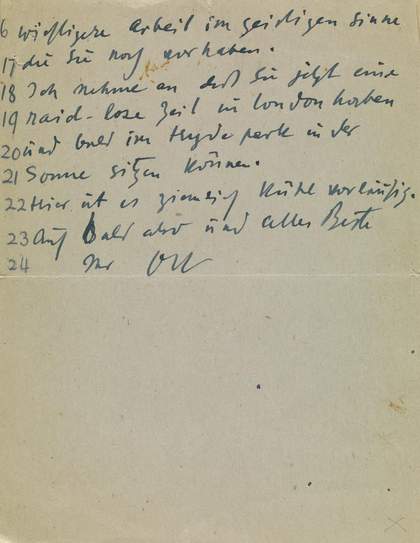 6 wichtigere Arbeit im geistigen Sinne
17 die Sie noch vorhaben.
18 Ich nehme an daß Sie jetzt eine
19 raid-lose Zeit in London haben
20 und bald im Hyde park in der
21 Sonne sitzen können.
22 Hier ist es ziemlich kühl vorläufig.
23 Auf bald also und alles Beste
24 Ihr